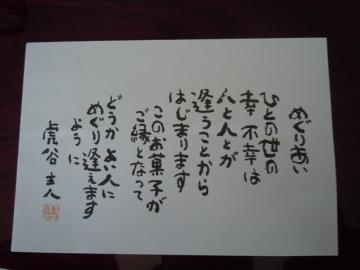 めぐりあい
ひとの世の
幸不幸は
人と人とが
逢うことから
はじまります
このお菓子が
ご縁となって
どうか よい人に
めぐり逢えます
ように
虎谷主人